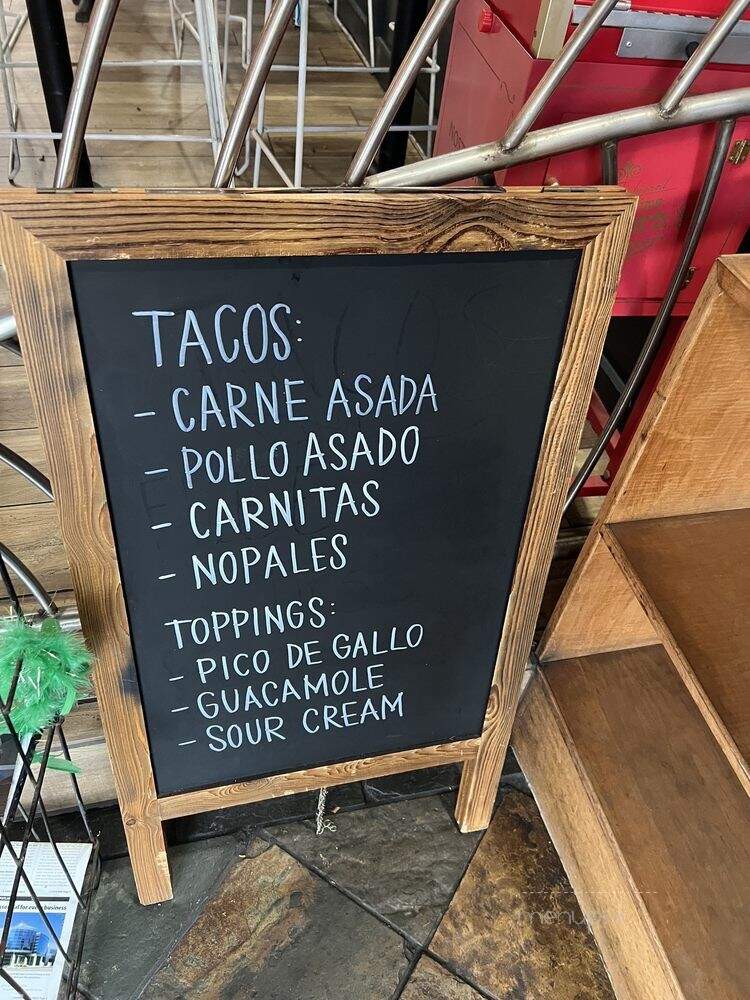 TACOS:
- CARNE ASADA
- POLLO ASADO
- CARNITAS
- NOPALES
TOPPINGS:
- PICO DE GALLO
- GUACAMOLE
- SOUR CREAM
for every business